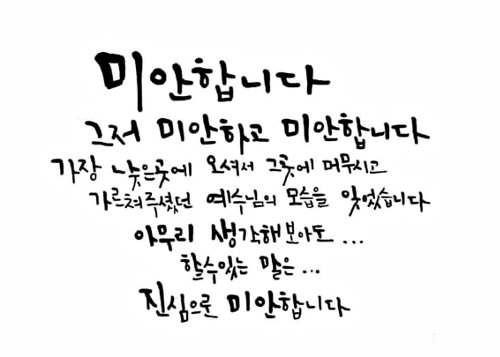 미안합니다
그저 미안하고 미안합니다
가장 낮은곳에 오셔서 그곳에 머무시고
가르쳐주셨던 예수님의 모습을 잊었습니다
아무리 생각해보아도 ...
할수있는 말은 ...
진심으로 미안합니다